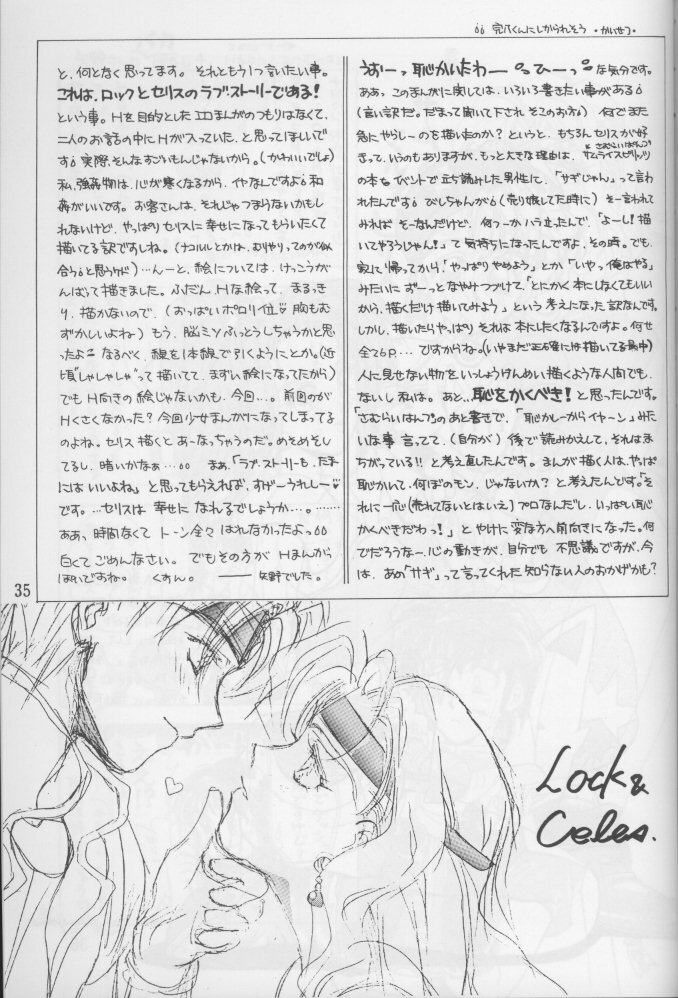 完穴くんにしかられそう ・かいせつ・
うおーッ恥かいたわー ひーっ な気分です。
ああっ、このまんがに関しては、いろいろ書きたい事がある
(言い訳だ。だまって聞いて下され そこのお方) 何でまた
急にやらしーのも描いたのか？というと、もちろんセリスが好
きって、いうのもありますが、もっと大きな理由は、サムライスピリッツ
さむらいぱんつ
の本をイベントで立ち読みした男性に、「サギじゃん」って言わ
れたんです びしちゃんが (売り嬢してた時に) そー言われて
みれば そーなんだけど、何つーか ハラ立ったんで、「よーし！描
いてやろうじゃん！」って気持ちになったんですよ、その時。でも、
家に帰ってから、「やっぱりやめよう」とか「いやっ俺はやる」
みたいに ずーっとなやみつづけて、「とにかく本にしなくてもいい
から、描くだけ描いてみよう」という考えになった訳なんです。
しかし、描いたらやっぱり それは本にしたくなるんですよ。何せ
全て6P…ですからね。(いやまだ正確には描いてる最中)
人に見せない物をいっしょうけんめい描くような人間でも、
ないし私は。あと…恥をかくべき！と思ったんです。
「さむらいぱんつ」のあと書きで、「恥かしーからイヤーン」みた
いな事言ってて、(自分が) 後で読みかえして、それはま
ちがっている!! と考え直したんです。まんが描く人は、やっぱ
恥かいて、何ぼのモン、じゃないか？と考えたんです。「そ
れに一応(売れてないとはいえ)プロなんだし、いっぱい恥
かくべきだわっ！」とやけに変な方へ前向きになった。何
でだろうな～、心の動きが、自分でも 不思議ですが、今
は、あの「サギ」って言ってくれた知らない人のおかげかも？
と、何となく思ってます。それともう1つ言いたい事。
これは、ロックとセリスのラブストーリーである！
という事。Hを目的としたエロまんがのつもりはなくて、
二人のお話の中にHが入っていた、と思ってほしいで
す 実際、そんなすごいもんじゃないから。(かわいいでしょ)
私、強姦物は、心が寒くなるから、イヤなんですよ 和
姦がいいです。お客さんは、それじゃつまらないかもし
れないけど、やっぱりセリスに幸せになってもらいたくて
描いてる訳ですしね。(ナコルルとかは、むりやりってのが似
合うと思うケド)…んーと、絵については、けっこうが
んばって描きました。ふだんHな絵って、まるっき
り、描かないので、(おっぱいポロリ位♡ 胸もむ
ずかしいよね) もう、脳ミソふっとうしちゃうかと思
ったよ なるべく、線を1本線で引くようにとか。(近
頃"しゃしゃしゃ"って描いてて、まずい絵になってたから)
でもH向きの絵じゃないかも、今回…。前回のが
Hくさくなかった？今回少女まんがになってしまってる
のよね。セリス描くと あーなっちゃうのだ。めそめそし
てるし、暗いかなぁ… まぁ、「ラブ・ストーリーも、たま
にはいいよね」と思ってもらえれば、すげーうれしー♡
です。…セリスは 幸せに なれるでしょうか…。……
ああ、時間なくて トーン全々 はれなかったよっ
白くてごめんなさい。でもその方が Hまんがっ
ぽいですね。 くすん。 ――矢野でした。
35
Lock &
Celes.